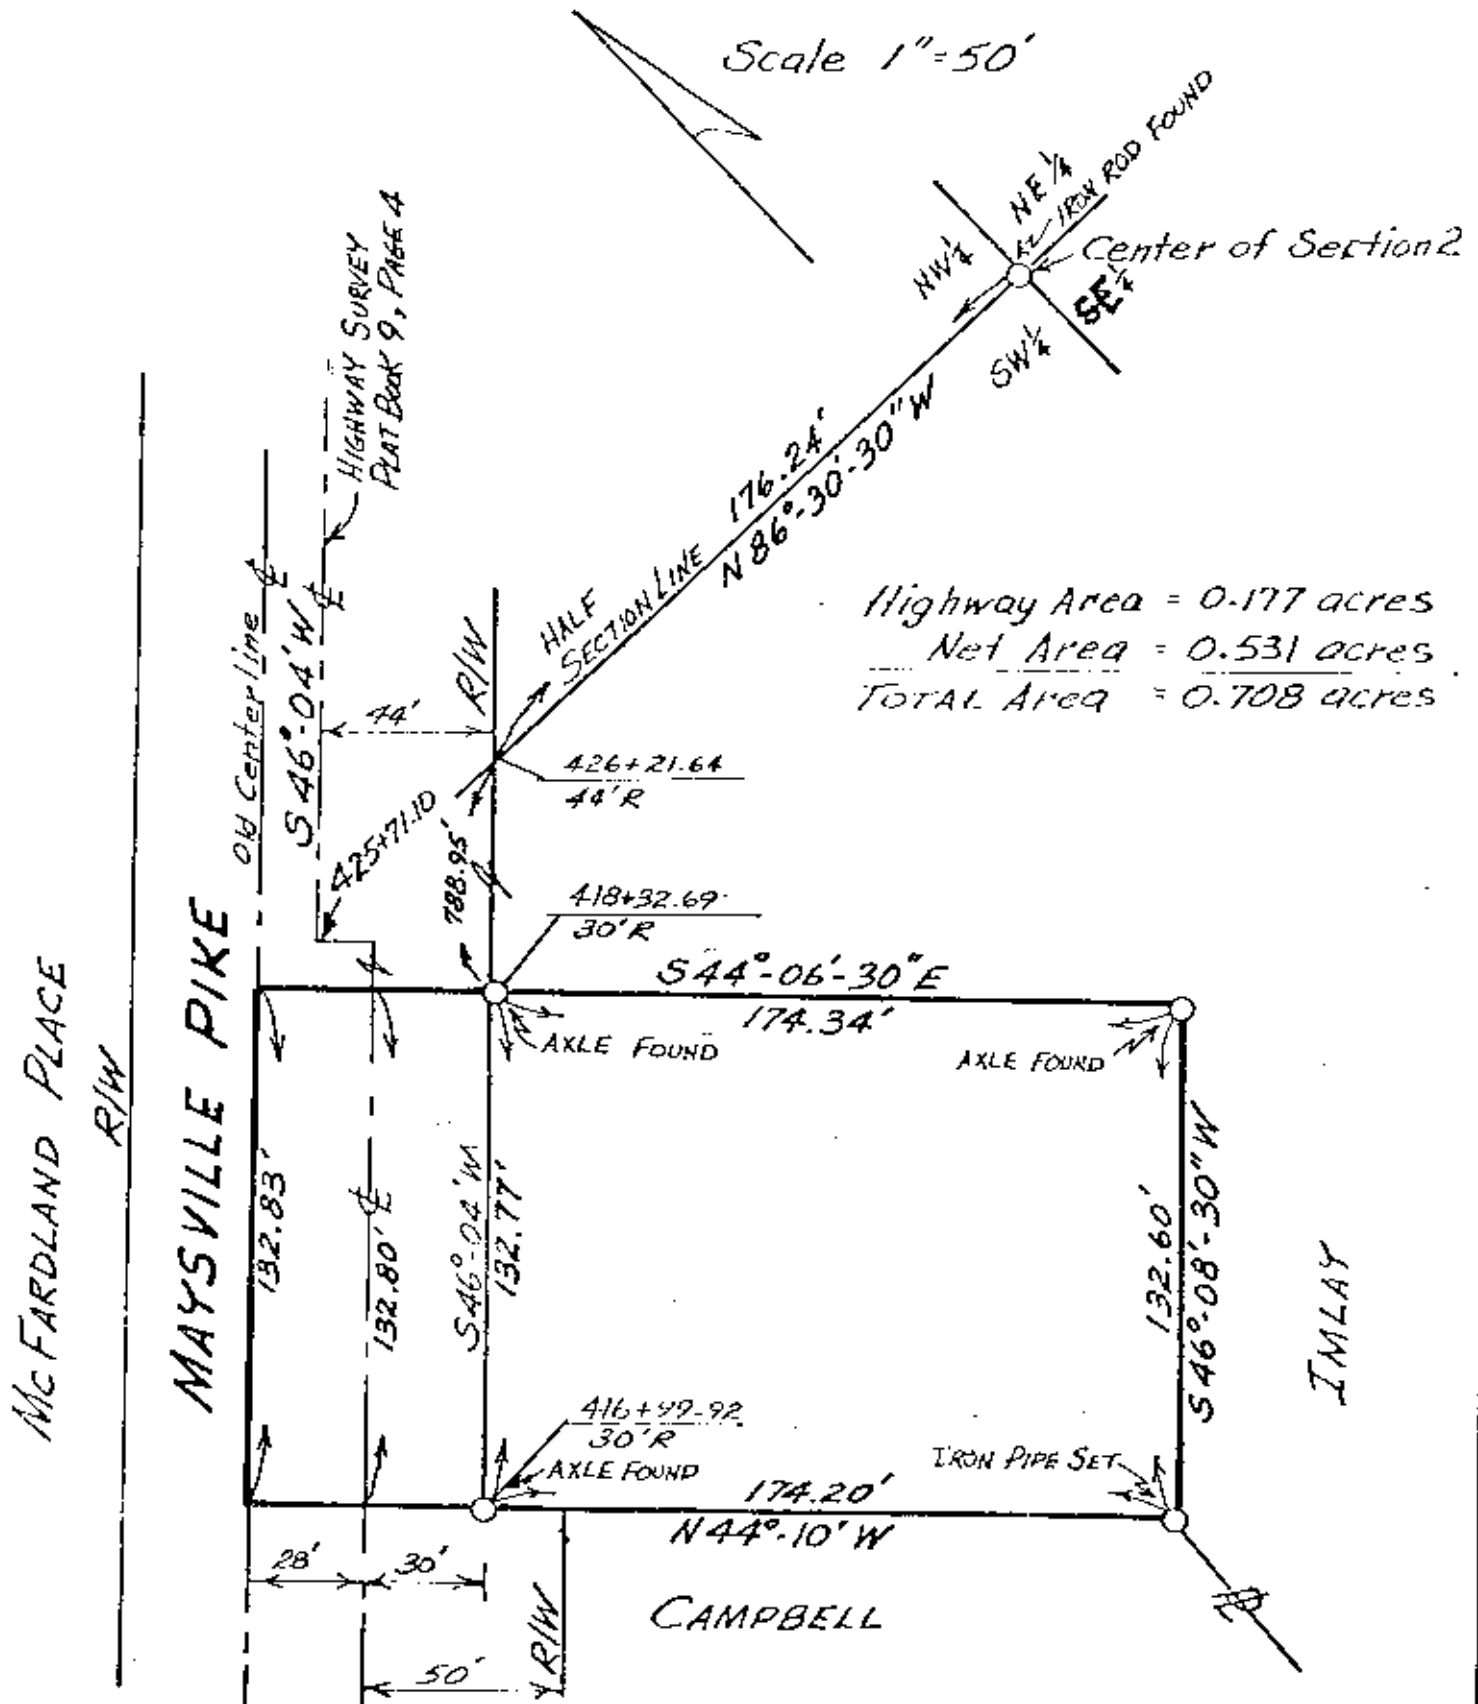 Scale 1"=50'
IRON ROD FOUND
NE 1/4
NW 1/4
Center of Section 2
SE 1/4
SW 1/4
HIGHWAY SURVEY
PLAT BOOK 9, PAGE 4
176.24'
N 86°-30'-30" W
HALF
SECTION LINE
Highway Area = 0.177 acres
Net Area = 0.531 acres
TOTAL Area = 0.708 acres
Old Centerline
S 46°-04' W
R/W
44'
426+21.64
44' R
425+71.10
788.95'
418+32.69
30' R
S 44°-06'-30" E
174.34'
AXLE FOUND
AXLE FOUND
McFARDLAND PLACE
R/W
MAYSVILLE PIKE
132.83'
132.80'
S 46°-04' W
132.77'
132.60'
S 46°-08'-30" W
IMLAY
416+99.92
30' R
AXLE FOUND
IRON PIPE SET
174.20'
N 44°-10' W
28'
30'
R/W
50'
CAMPBELL